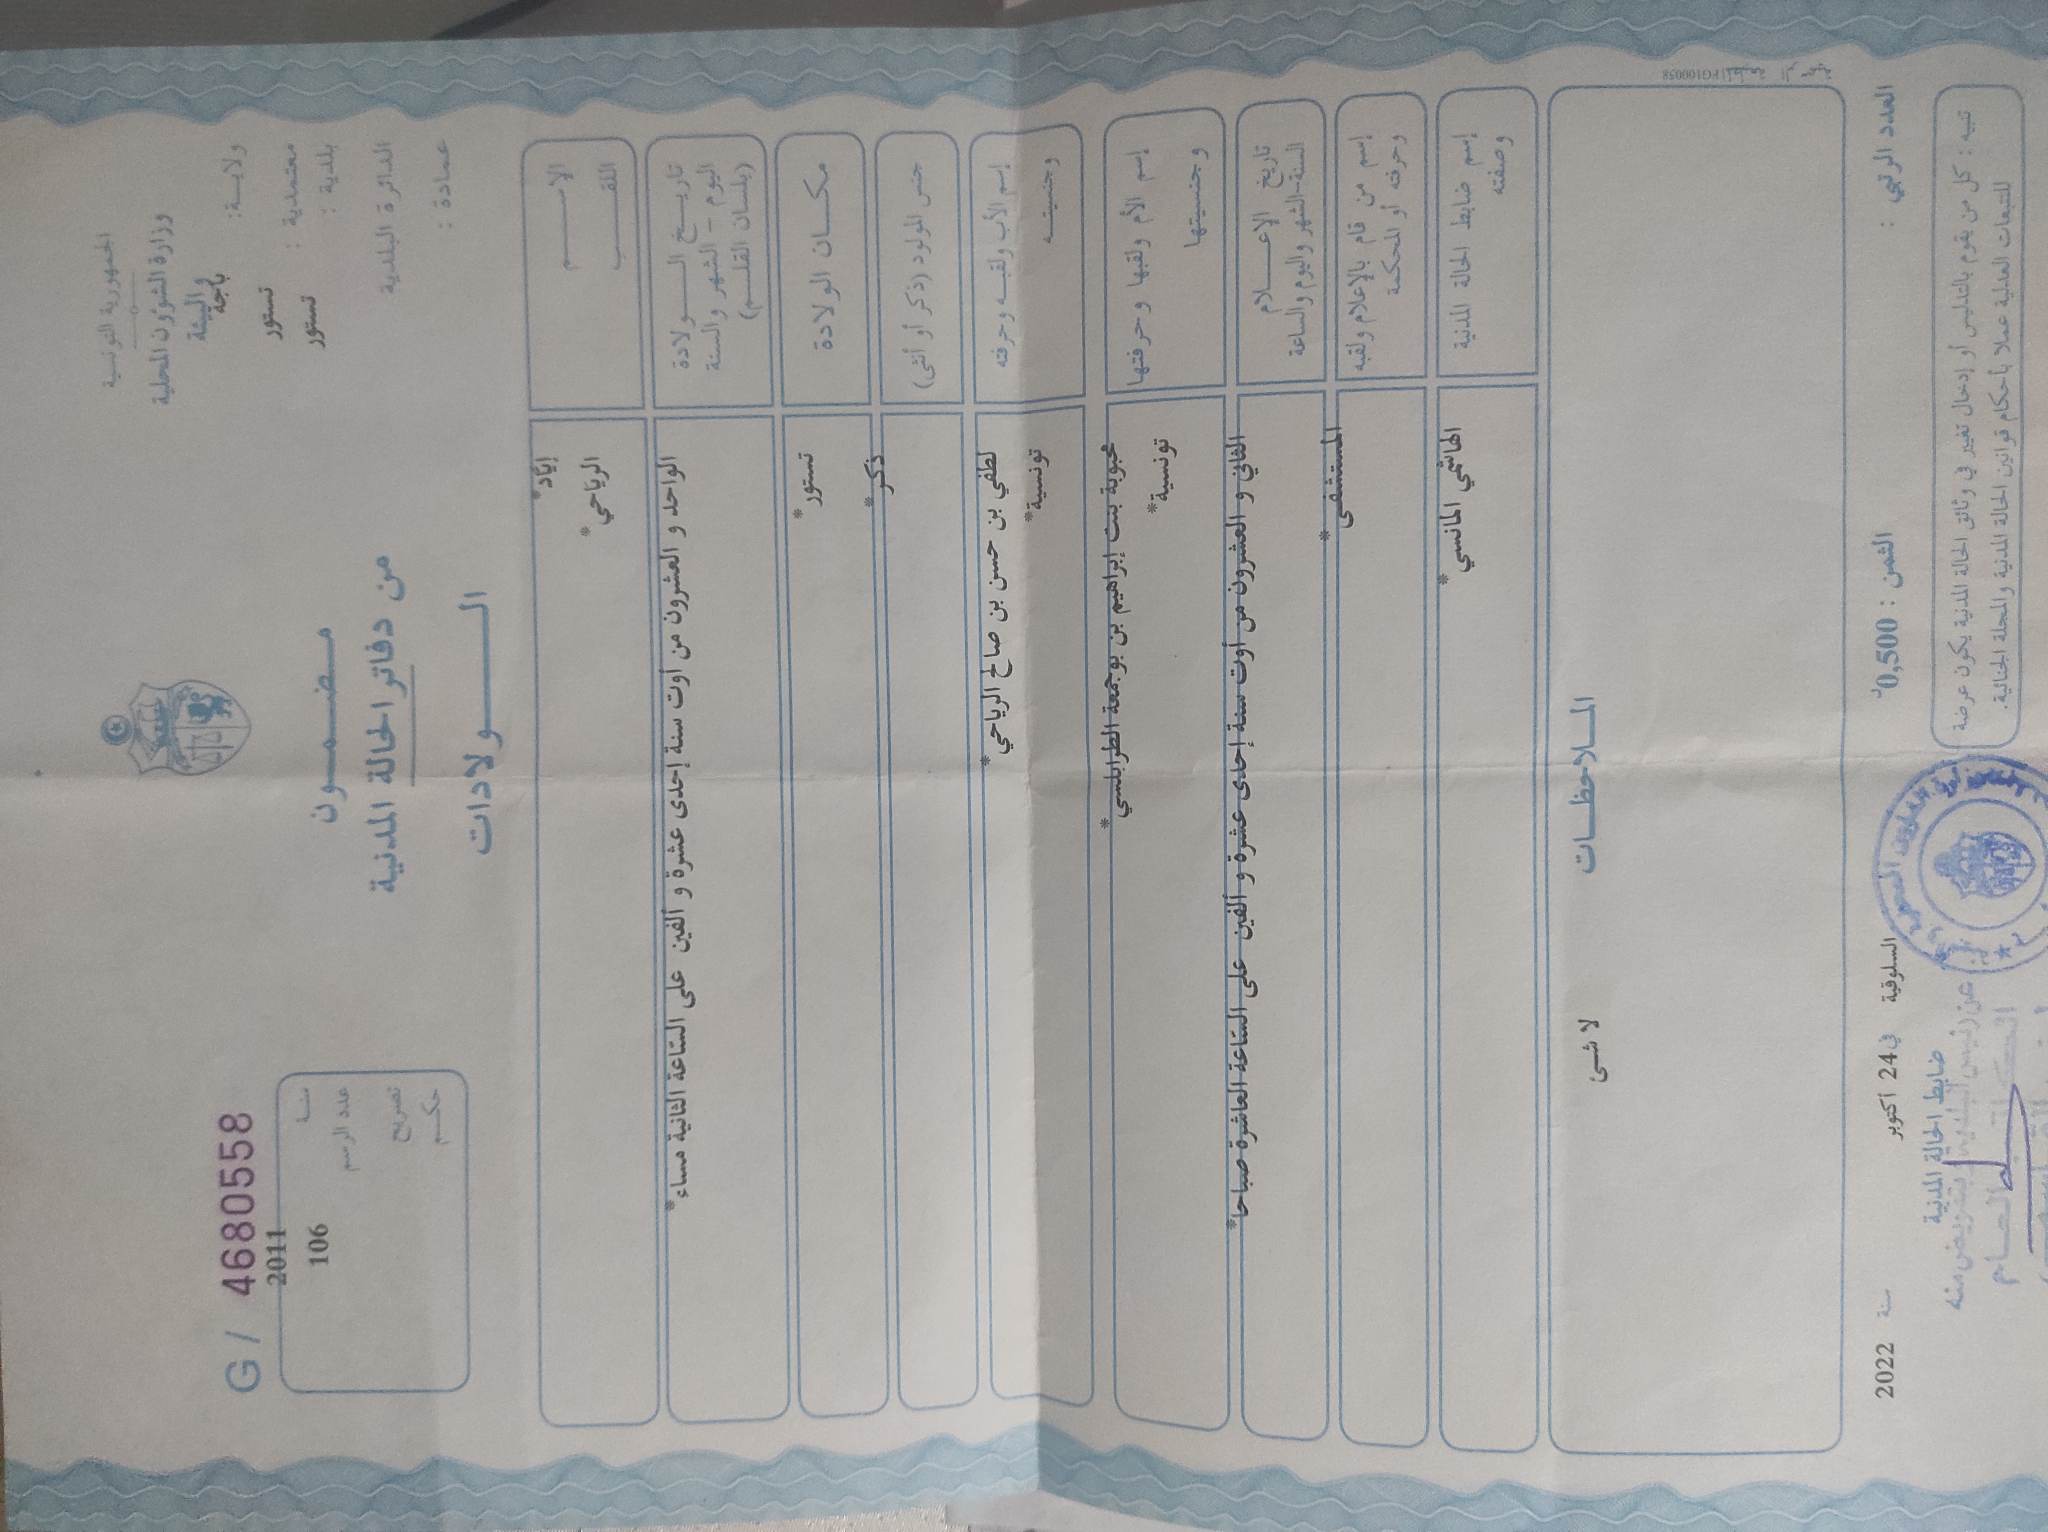 الجمهورية التونسية
وزارة الشؤون المحلية
والبيئة
ولاية: باجة
معتمدية : تستور
بلدية : تستور
الدائرة البلدية
عمادة :
G / 4680558
سنة 2011
عدد الرسم 106
تصريح
حكم
مضمون
من دفاتر الحالة المدنية
الولادات
الإسم إيّاد*
اللقب الرياحي*
تاريخ الولادة
اليوم - الشهر والسنة
(بلسان القلم)
الواحد و العشرون من أوت سنة إحدى عشرة و ألفين على السّاعة الثانية مساء*
مكان الولادة تستور*
جنس المولود (ذكر أو أنثى) ذكر*
إسم الأب ولقبه وحرفته لطفي بن حسن بن صالح الرياحي*
وجنسيته تونسية*
إسم الأم ولقبها وحرفتها محبوبة بنت إبراهيم بن بوجمعة الطرابلسي*
وجنسيتها تونسية*
تاريخ الإعلام
السنة-الشهر واليوم والساعة
الثاني و العشرون من أوت سنة إحدى عشرة و ألفين على السّاعة العاشرة صباحا*
إسم من قام بالإعلام ولقبه
وحرفته أو المحكمة
المستشفى*
إسم ضابط الحالة المدنية
وصفته
الهاشمي المانسي*
الملاحظات
لا شئ
العدد الرتبي :
الثمن : 0,500د
السلوقية في 24 أكتوبر سنة 2022
تنبيه : كل من يقوم بالتدليس أو إدخال تغيير في وثائق الحالة المدنية يكون عرضة
للتبعات العدلية عملا بأحكام قوانين الحالة المدنية والمجلة الجنائية.
ضابط الحالة المدنية
عن رئيس البلدية وبتفويض منه
الكاتب العام